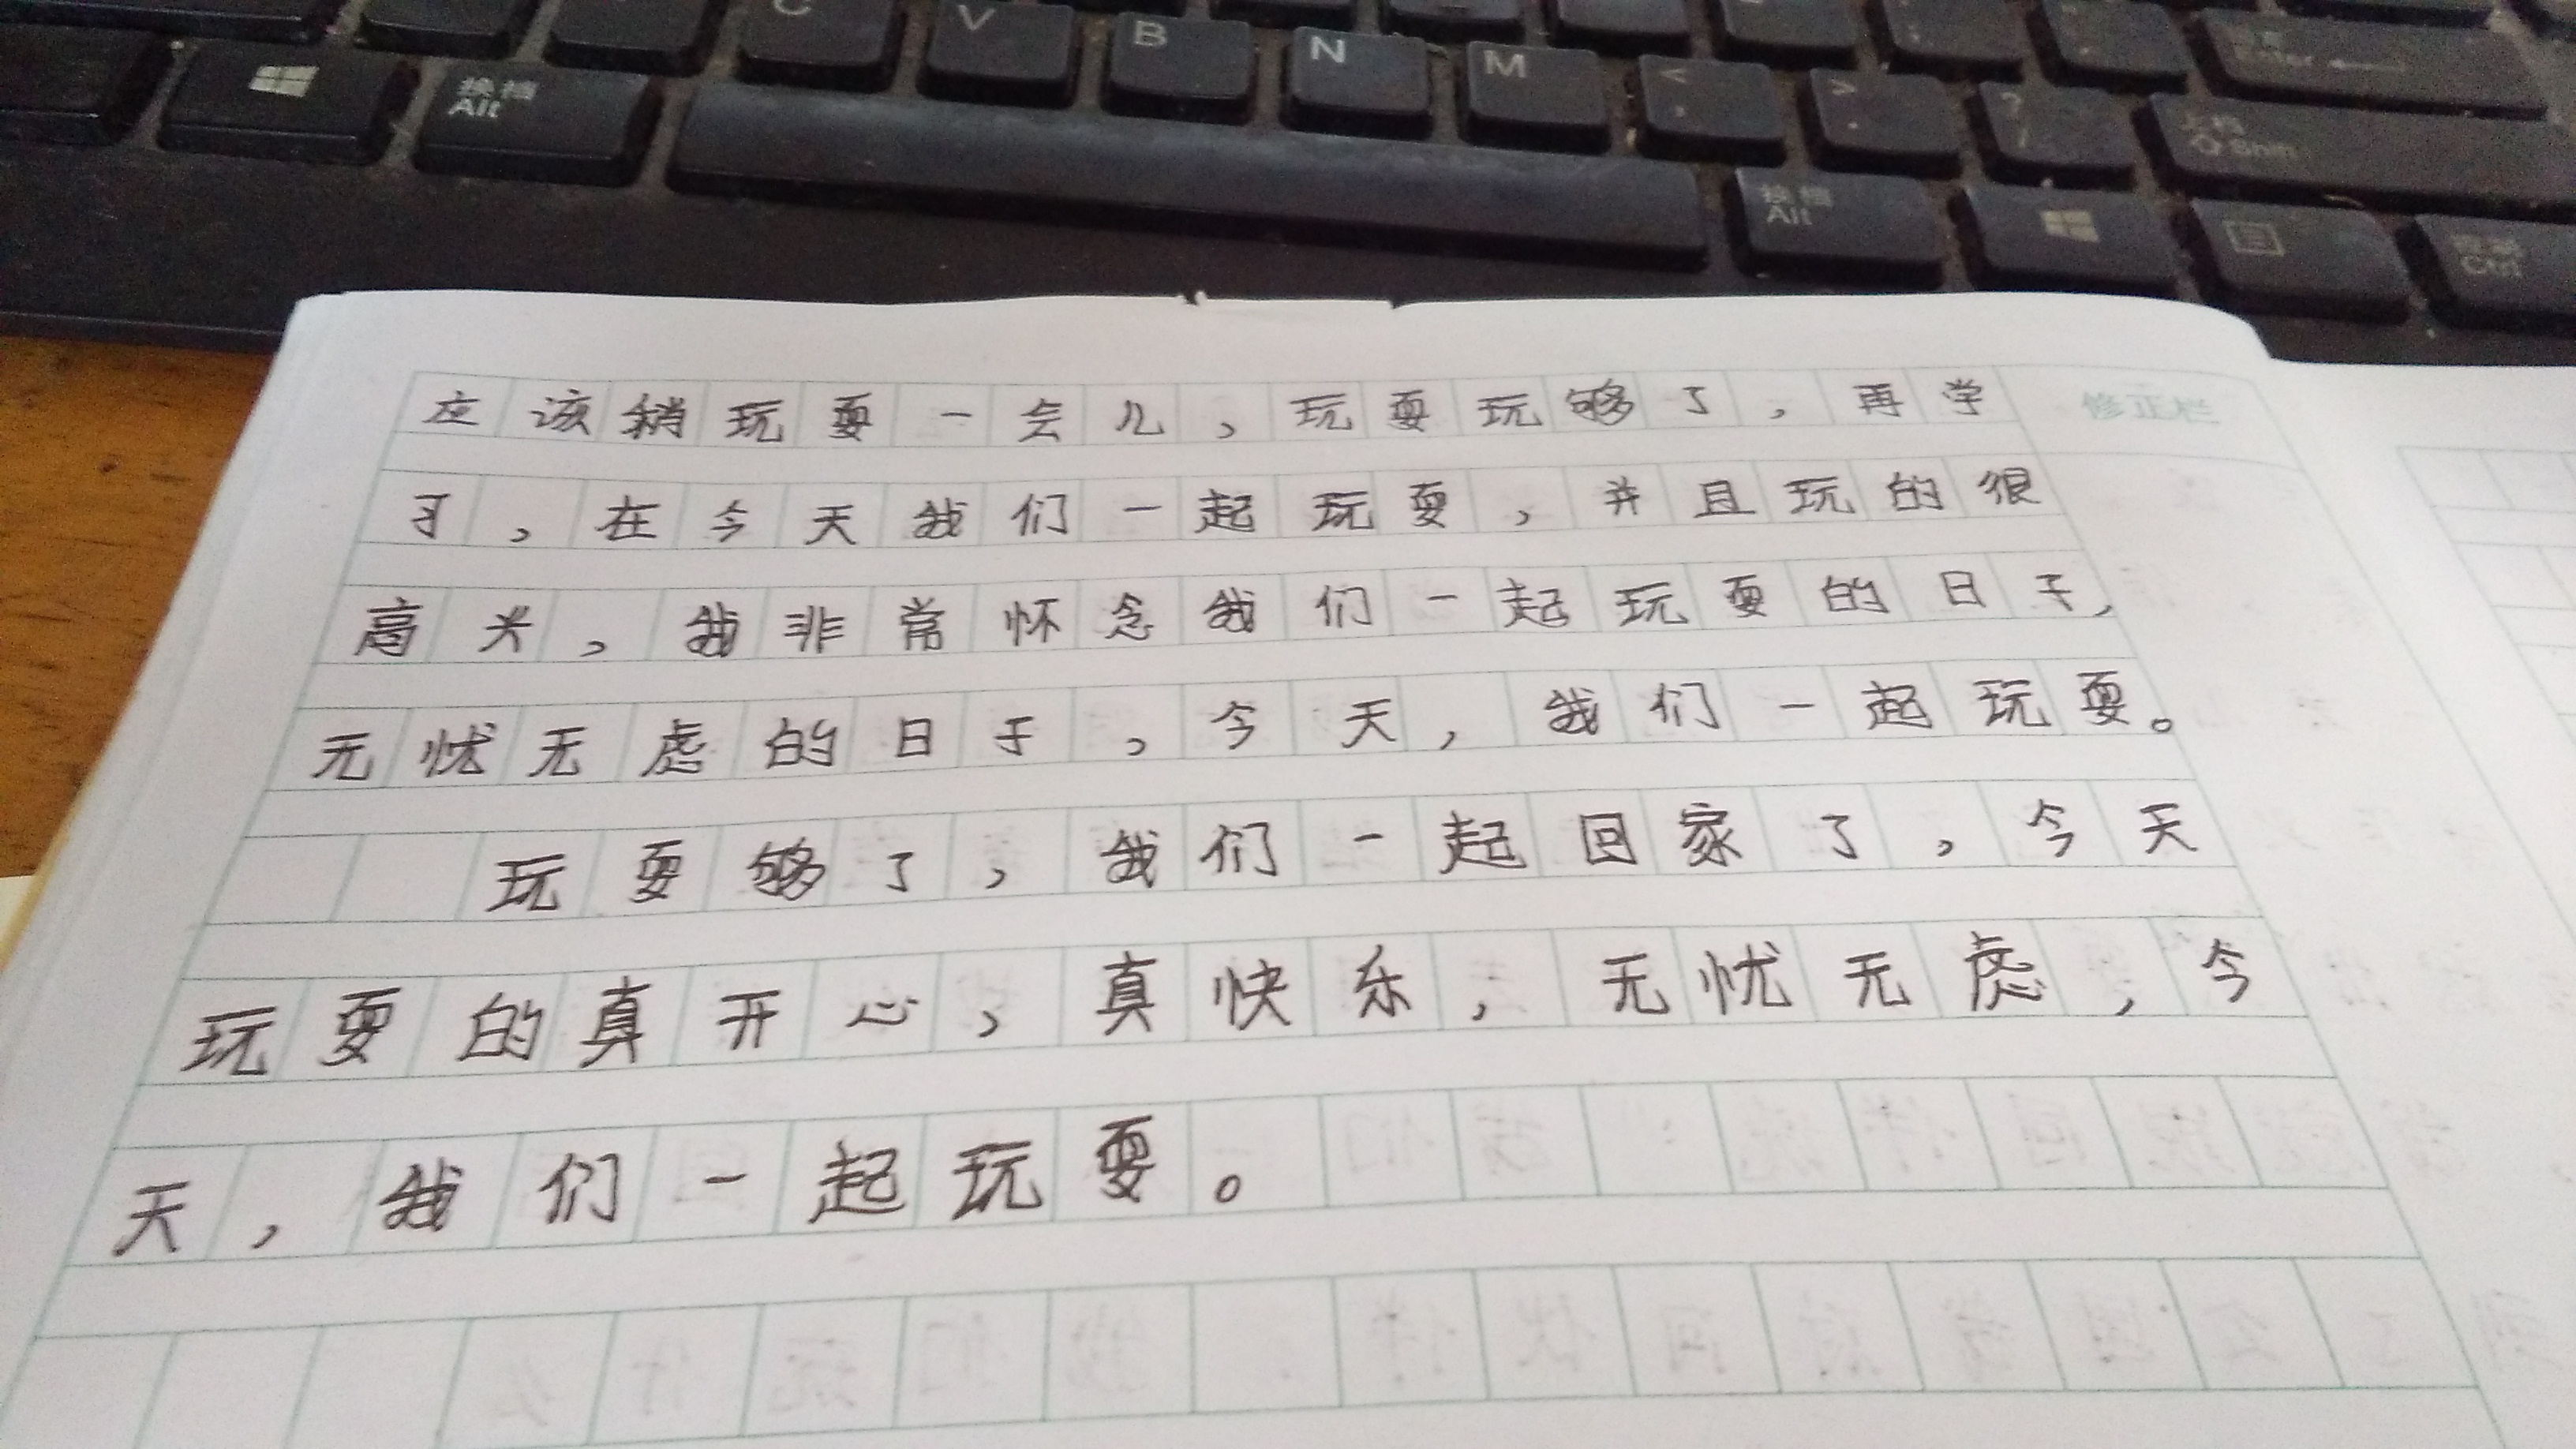 C V B N M
换档 Alt < , > . ? / 上档 Shift
Enter
换档 Alt Ctrl
修正栏
应该稍玩耍一会儿，玩耍玩够了，再学
习，在今天我们一起玩耍，并且玩的很
高兴，我非常怀念我们一起玩耍的日子，
无忧无虑的日子，今天，我们一起玩耍。
玩耍够了，我们一起回家了，今天
玩耍的真开心，真快乐，无忧无虑，今
天，我们一起玩耍。